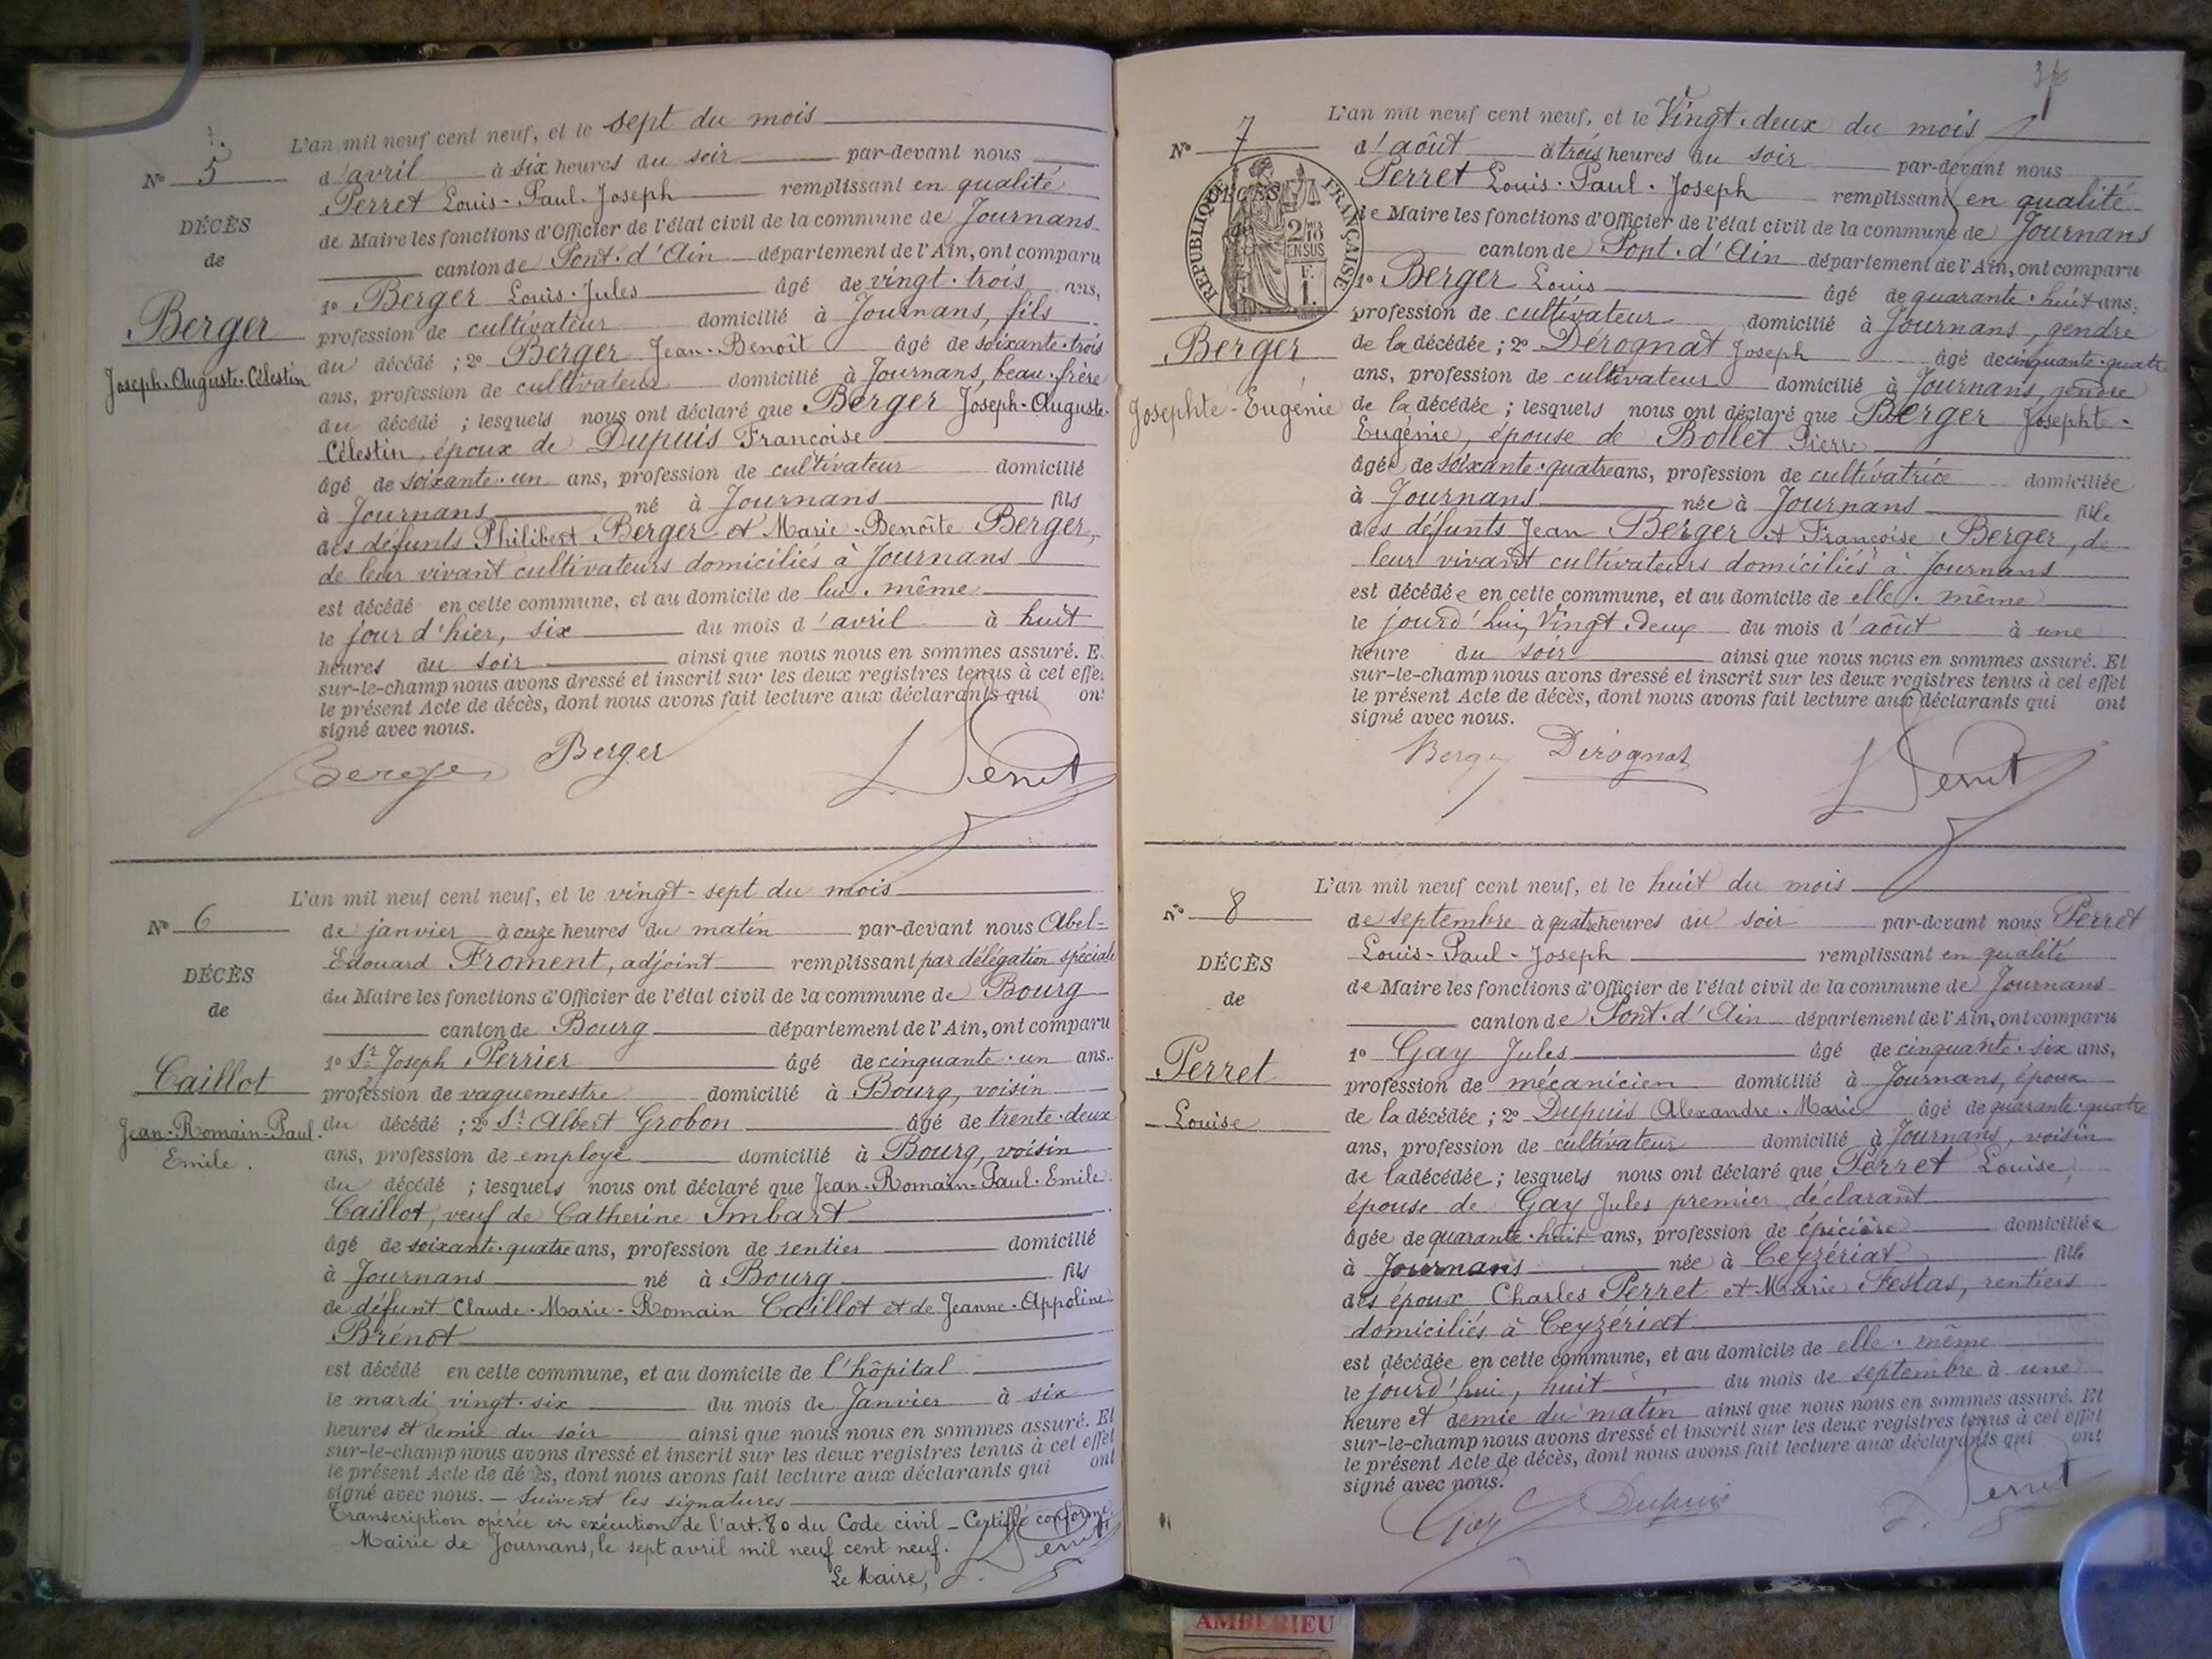 L'an mil neuf cent neuf, et le sept du mois
N° 5
d'avril à six heures du soir par-devant nous
Perret Louis-Paul-Joseph remplissant en qualité
DÉCÈS
de Maire les fonctions d'Officier de l'état civil de la commune de Journans
de
canton de Pont-d'Ain département de l'Ain, ont comparu
1° Berger Louis-Jules âgé de vingt-trois ans,
Berger
profession de cultivateur domicilié à Journans, fils
du décédé ; 2° Berger Jean-Benoît âgé de soixante-trois
Joseph-Auguste-Célestin
ans, profession de cultivateur domicilié à Journans, beau-frère
du décédé ; lesquels nous ont déclaré que Berger Joseph-Auguste-
Célestin, époux de Dupuis Françoise
âgé de soixante-un ans, profession de cultivateur domicilié
à Journans né à Journans fils
des défunts Philibert Berger et Marie-Benoîte Berger,
de leur vivant cultivateurs domiciliés à Journans
est décédé en cette commune, et au domicile de lui-même
le jour d'hier, six du mois d'avril à huit
heures du soir ainsi que nous nous en sommes assuré. E
sur-le-champ nous avons dressé et inscrit sur les deux registres tenus à cet effet
le présent Acte de décès, dont nous avons fait lecture aux déclarants qui ont
signé avec nous.
Berger Berger L. Perret
L'an mil neuf cent neuf, et le vingt-sept du mois
N° 6
de janvier à onze heures du matin par-devant nous Abel-
Edouard Froment, adjoint remplissant par délégation spéciale
DÉCÈS
du Maire les fonctions d'Officier de l'état civil de la commune de Bourg
de
canton de Bourg département de l'Ain, ont comparu
1° Sr Joseph Perrier âgé de cinquante-un ans.
Caillot
profession de vaguemestre domicilié à Bourg, voisin
Jean-Romain-Paul-
du décédé ; 2° Sr Albert Grobon âgé de trente-deux
Emile.
ans, profession de employé domicilié à Bourg, voisin
du décédé ; lesquels nous ont déclaré que Jean-Romain-Paul-Emile
Caillot, veuf de Catherine Imbart
âgé de soixante-quatre ans, profession de rentier domicilié
à Journans né à Bourg fils
de défunt Claude-Marie-Romain Caillot et de Jeanne-Appoline
Brénot
est décédé en cette commune, et au domicile de l'hôpital
le mardi vingt-six du mois de Janvier à six
heures et demie du soir ainsi que nous nous en sommes assuré. Et
sur-le-champ nous avons dressé et inscrit sur les deux registres tenus à cet effet
le présent Acte de décès, dont nous avons fait lecture aux déclarants qui ont
signé avec nous. — Suivent les signatures
Transcription opérée en exécution de l'art. 80 du Code civil — Certifié conforme.
Mairie de Journans, le sept avril mil neuf cent neuf.
Le Maire, L. Perret
L'an mil neuf cent neuf, et le Vingt-deux du mois
N° 7
d'août à trois heures du soir par-devant nous
Perret Louis-Paul-Joseph remplissant en qualité
DÉCÈS
RÉPUBLIQUE FRANÇAISE
2/10 EN SUS
F. 1.
de Maire les fonctions d'Officier de l'état civil de la commune de Journans
canton de Pont-d'Ain département de l'Ain, ont comparu
1° Berger Louis âgé de quarante-huit ans,
profession de cultivateur domicilié à Journans, gendre
Berger
de la décédée ; 2° Dérognat Joseph âgé de cinquante-quatre
ans, profession de cultivateur domicilié à Journans, gendre
Josephte-Eugénie
de la décédée ; lesquels nous ont déclaré que Berger Josephte-
Eugénie, épouse de Bollet Pierre
âgée de soixante-quatre ans, profession de cultivatrice domiciliée
à Journans née à Journans fille
des défunts Jean Berger et Françoise Berger, de
leur vivant cultivateurs domiciliés à Journans
est décédée en cette commune, et au domicile de elle-même
le jourd'hui, Vingt-deux du mois d'août à une
heure du soir ainsi que nous nous en sommes assuré. Et
sur-le-champ nous avons dressé et inscrit sur les deux registres tenus à cet effet
le présent Acte de décès, dont nous avons fait lecture aux déclarants qui ont
signé avec nous.
Berger Dérognat L. Perret
L'an mil neuf cent neuf, et le huit du mois
N° 8
de septembre à quatre heures du soir par-devant nous Perret
Louis-Paul-Joseph remplissant en qualité
DÉCÈS
de Maire les fonctions d'Officier de l'état civil de la commune de Journans
de
canton de Pont-d'Ain département de l'Ain, ont comparu
1° Gay Jules âgé de cinquante-six ans,
Perret
profession de mécanicien domicilié à Journans, époux
Louise
de la décédée ; 2° Dupuis Alexandre-Marie âgé de quarante-quatre
ans, profession de cultivateur domicilié à Journans, voisin
de la décédée ; lesquels nous ont déclaré que Perret Louise,
épouse de Gay Jules premier déclarant
âgée de quarante-huit ans, profession de épicière domiciliée
à Journans née à Ceyzériat fille
des époux Charles Perret et Marie Festas, rentiers
domiciliés à Ceyzériat
est décédée en cette commune, et au domicile de elle-même
le jourd'hui, huit du mois de septembre à une
heure et demie du matin ainsi que nous nous en sommes assuré. Et
sur-le-champ nous avons dressé et inscrit sur les deux registres tenus à cet effet
le présent Acte de décès, dont nous avons fait lecture aux déclarants qui ont
signé avec nous.
Gay Dupuis L. Perret
AMBERIEU